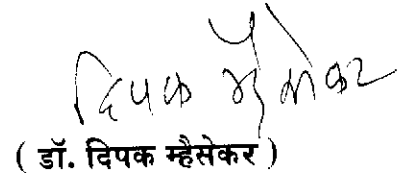 दिपक म्हैसेकर
( डॉ. दिपक म्हैसेकर )